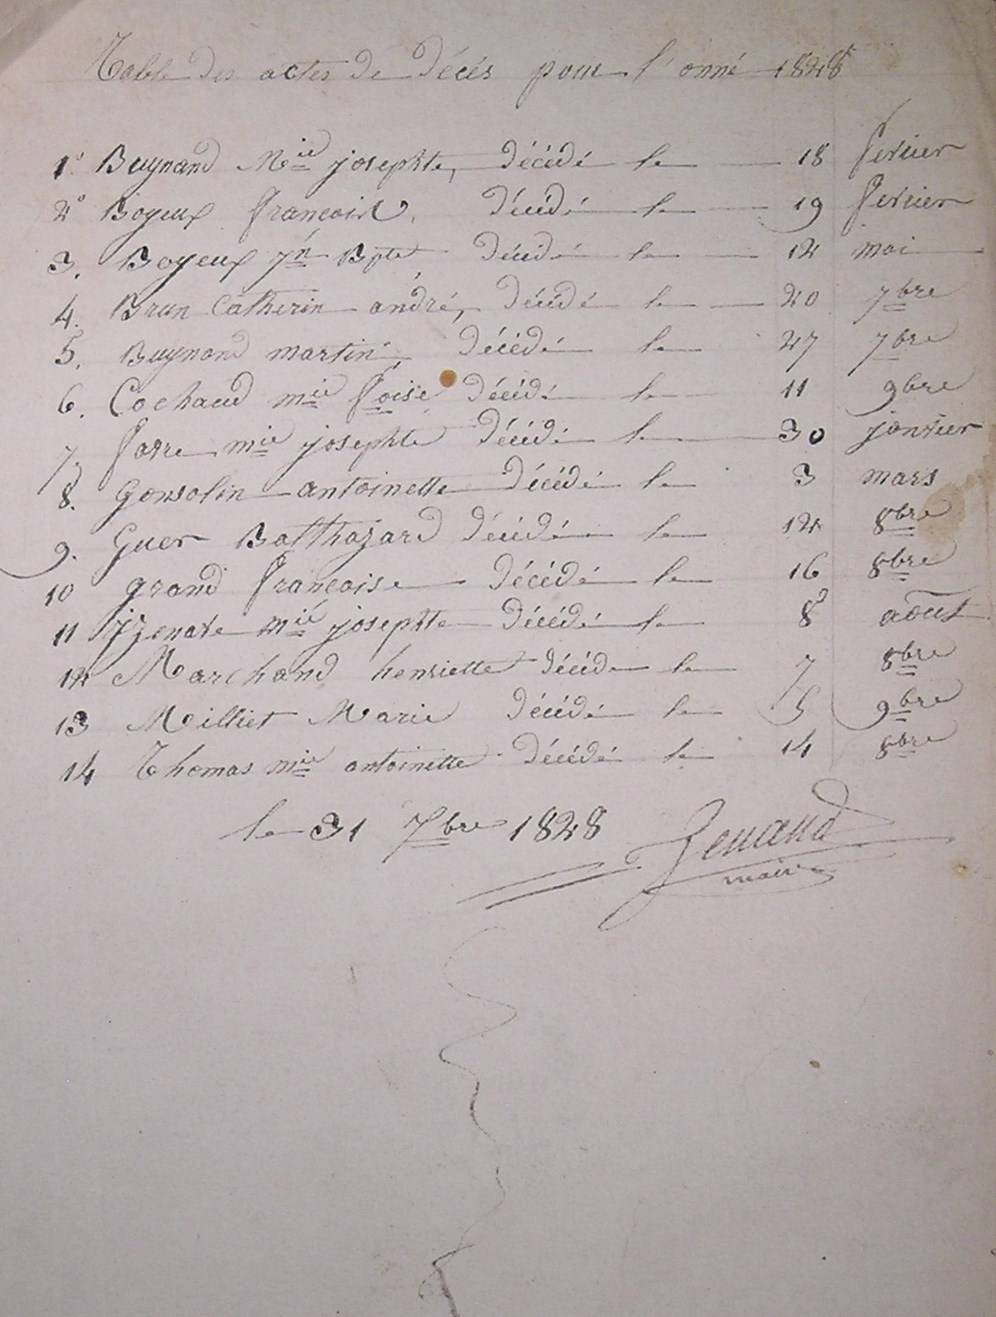 Table des actes de décés pour l'anné 1828
1° Buynand Mie josephte, décédé le 18 fevrier
2° Boyeux francois, décédé le 19 fevrier
3. Boyeux jn Bpte décédé le 12 mai
4. Brun Catherin andré, décédé le 20 7bre
5. Buynand martin décédé le 27 7bre
6. Cochaud mie foise décédé le 11 9bre
7. farre mie josephte décédé le 30 janvier
8. Gonsolin antoinette décédé le 3 mars
9. Guer Balthazard décédé le 12 8bre
10 grand francoise décédé le 16 8bre
11 mie josephte décédé le 8 août
12 Marchand henriette décédé le 7 8bre
13 Milliet Marie décédé le 5 9bre
14 Thomas mie antoinette décédé le 14 8bre
le 31 Xbre 1828
maire